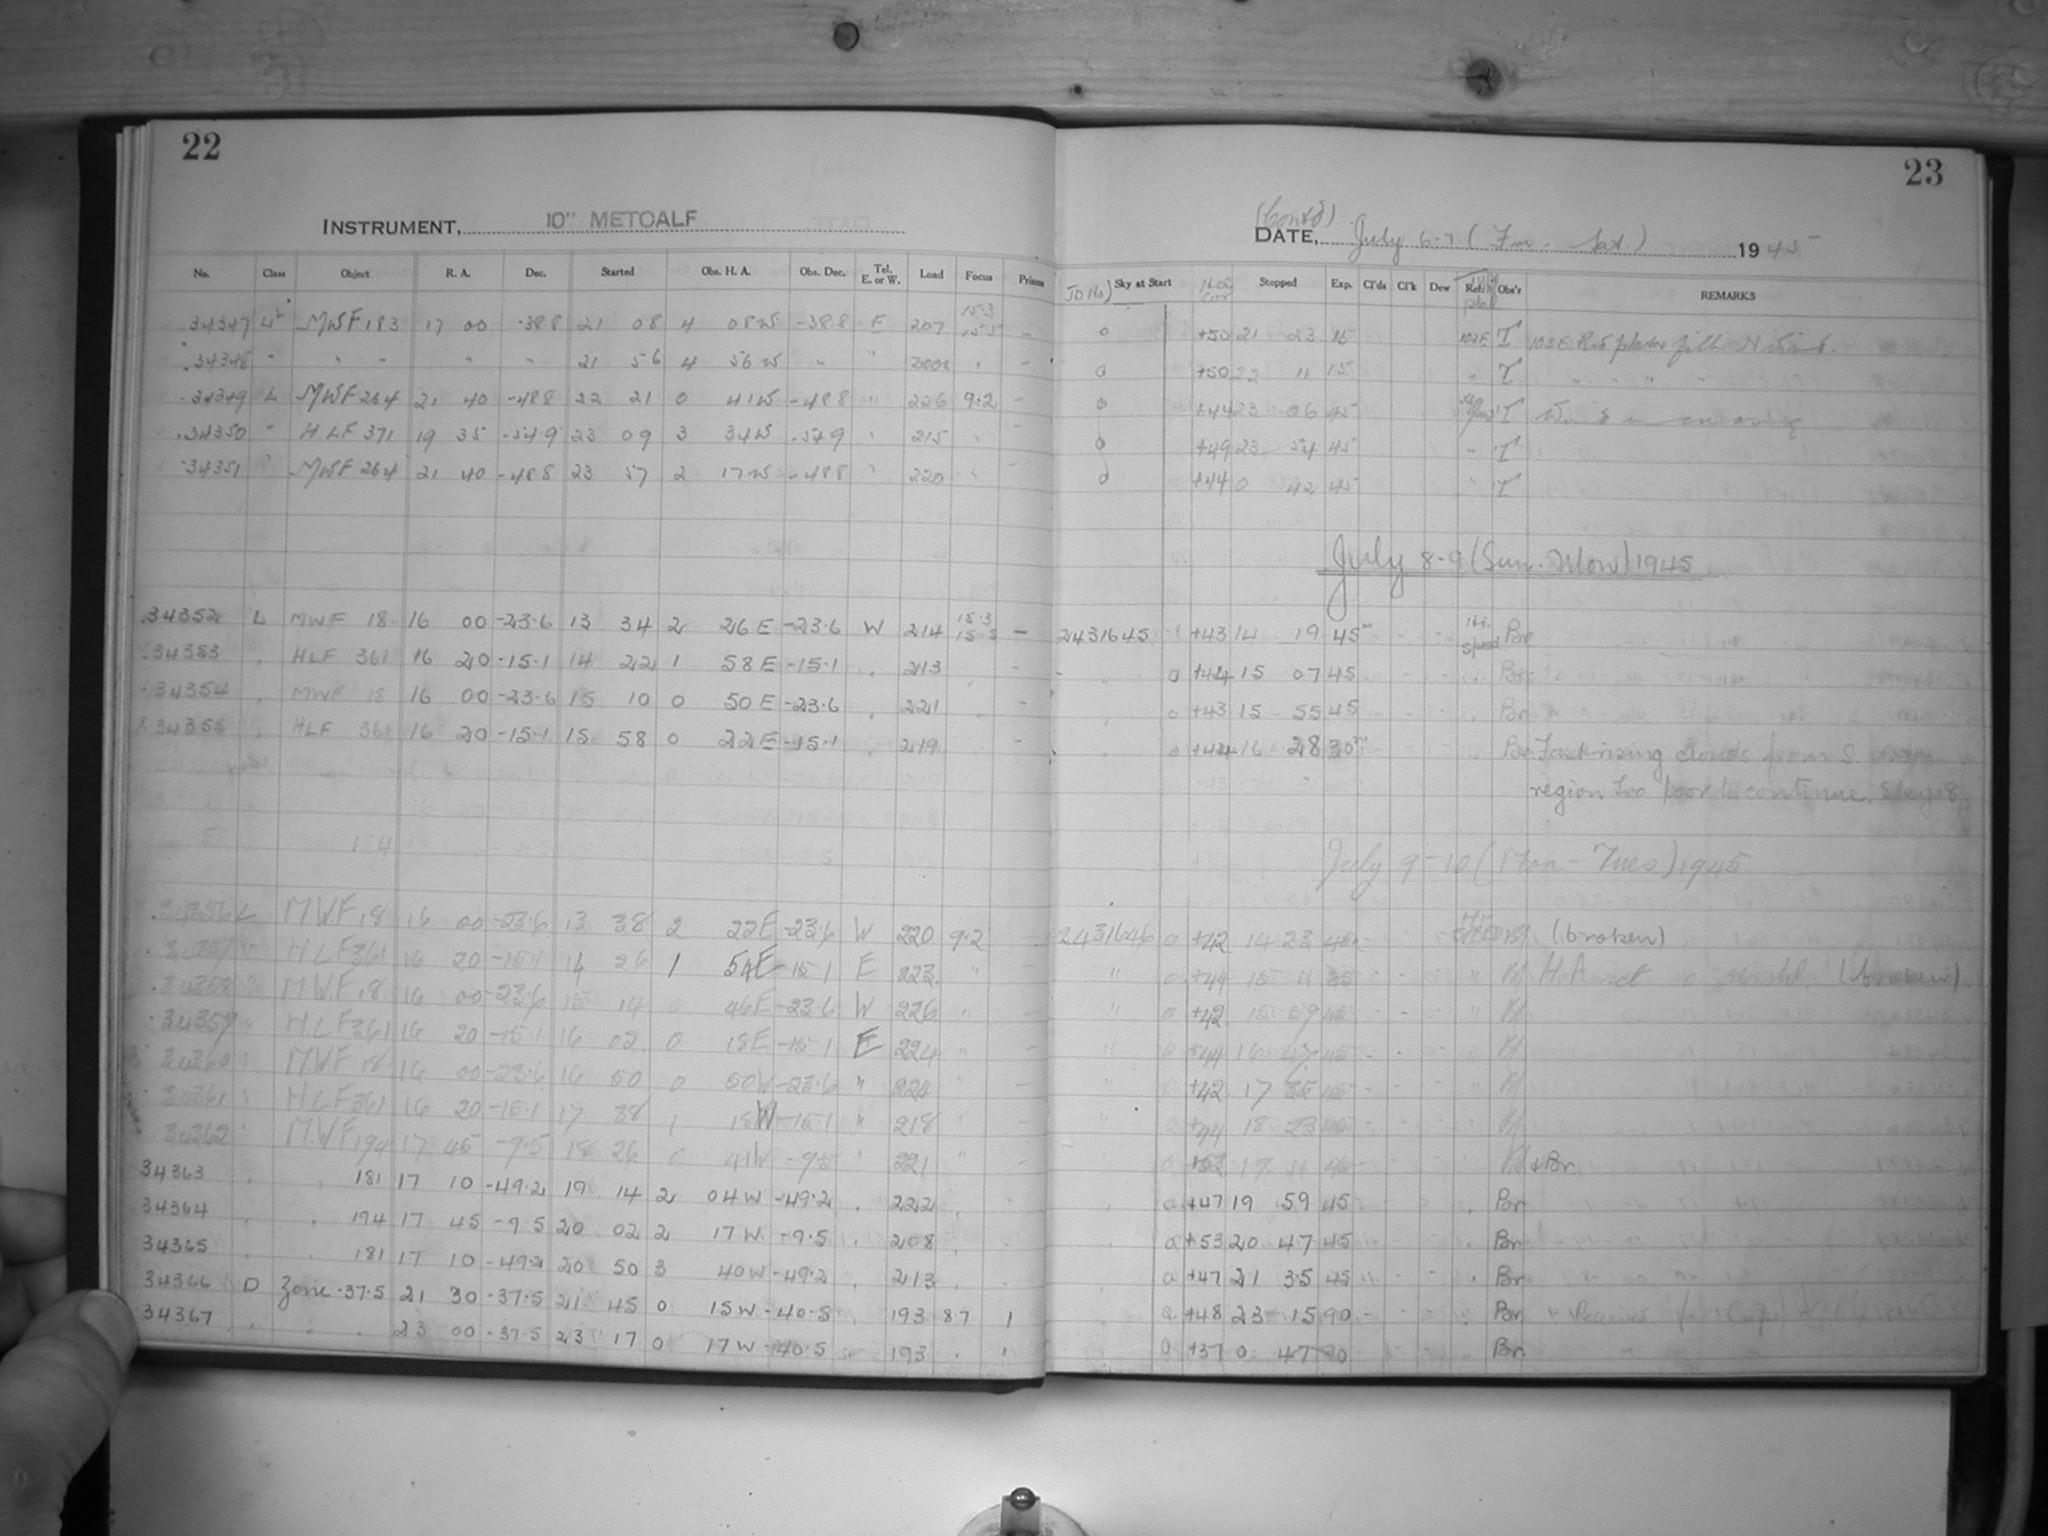 22
INSTRUMENT, 10" METCALF
No. Class Object R. A. Dec. Started Obs. H. A. Obs. Dec. Tel. E. or W. Load Focus Prisms
34347 L² MWF 183 17 00 -38.8 21 08 4 08W -38.8 E 207 15.3 15.5 -
34348 " " " " " 21 56 4 56W " "
34349 L MWF 264 21 40 -48.8 22 21 0 41W -48.8 " 226 9.2 -
34350 " HLF 371 19 35 -54.9 23 09 3 34W -54.9 " 215
34351 " MWF 264 21 40 -48.8 23 57 2 17W -48.8 " 220
34352 L MWF 18 16 00 -23.6 13 34 2 26E -23.6 W 214 15.3 15.5 -
34353 " HLF 361 16 20 -15.1 14 22 1 58E -15.1 " 213 -
34354 " MWF 18 16 00 -23.6 15 10 0 50E -23.6 " 221 -
34355 HLF 361 16 20 -15.1 15 58 0 22E -15.1 " 219 -
34356 L M.W.F 18 16 00 -23.6 13 38 2 22E -23.6 W 220 9.2 -
34357 " HLF 361 16 20 -15.1 14 26 1 54E -15.1 E 223 "
34358 " M.W.F 18 16 00 -23.6 15 14 0 46E -23.6 W 226 "
34359 " HLF 361 16 20 -15.1 16 02 0 18E -15.1 E 224 "
34360 M.W.F 18 16 00 -23.6 16 50 0 50W -23.6 " 224 "
34361 " HLF 361 16 20 -15.1 17 38 1 18W -15.1 " 218 "
34362 " M.W.F 194 17 45 -9.5 18 26 0 41W -9.5 " 221 "
34363 " " 181 17 10 -49.2 19 14 2 04W -49.2 " 222
34364 " " 194 17 45 -9.5 20 02 2 17W -9.5 " 208
34365 " " 181 17 10 -49.2 20 50 3 40W -49.2 " 213
34366 D Zone -37.5 21 30 -37.5 21 45 0 15W -40.5 193 8.7 1
34367 " " " 23 00 -37.5 23 17 0 17W -40.5 193 " "
23
(Cont'd)
DATE, July 6-7 (Fri. - Sat.) 1945
JD No) Sky at Start Stopped Exp. Cl'ds Cl'k Dew Obs'r REMARKS
0 +50 21 23 15 103E T 103E Red plates
0 +50 22 11 15 " T
0 +44 23 06 45 T Wind increasing
0 +49 23 54 45 " T
0 +44 0 42 45 " T
July 8-9 (Sun.-Mon) 1945
2431645 1 +43 14 19 45 Hi. speed Br
" 0 +44 15 07 45 " Br
" 0 +43 15 55 45 " Br
" 0 +44 16 28 30 " Br Fast rising clouds from S.
region too poor to continue. Sky 8
July 9-10 (Mon-Tues) 1945
2431646 0 +42 14 23 45 (broken)
" 0 +44 15 11 H.A. set (broken)
" 0 +42 15 59 45 "
" 0 +44 16 47 45 "
" +42 17 35 45 "
" 0 +44 18 23 45 "
0 +52 19 11 45 & Br.
" 0 +47 19 59 45 " Br
" 0 +53 20 47 45 Br
" 0 +47 21 35 45 " Br
0 +48 23 15 90 - Br
0 +37 0 47 90 Br.